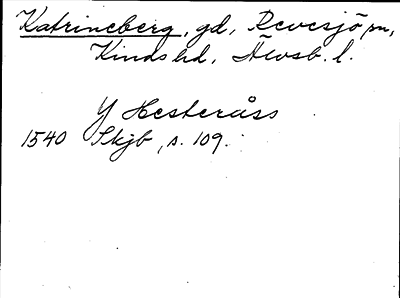 Katrineberg, gd, Revesjö sn,
Kinds hd, Älvsb. l.
Y Hesteråss
1540 Skjb, s. 109.